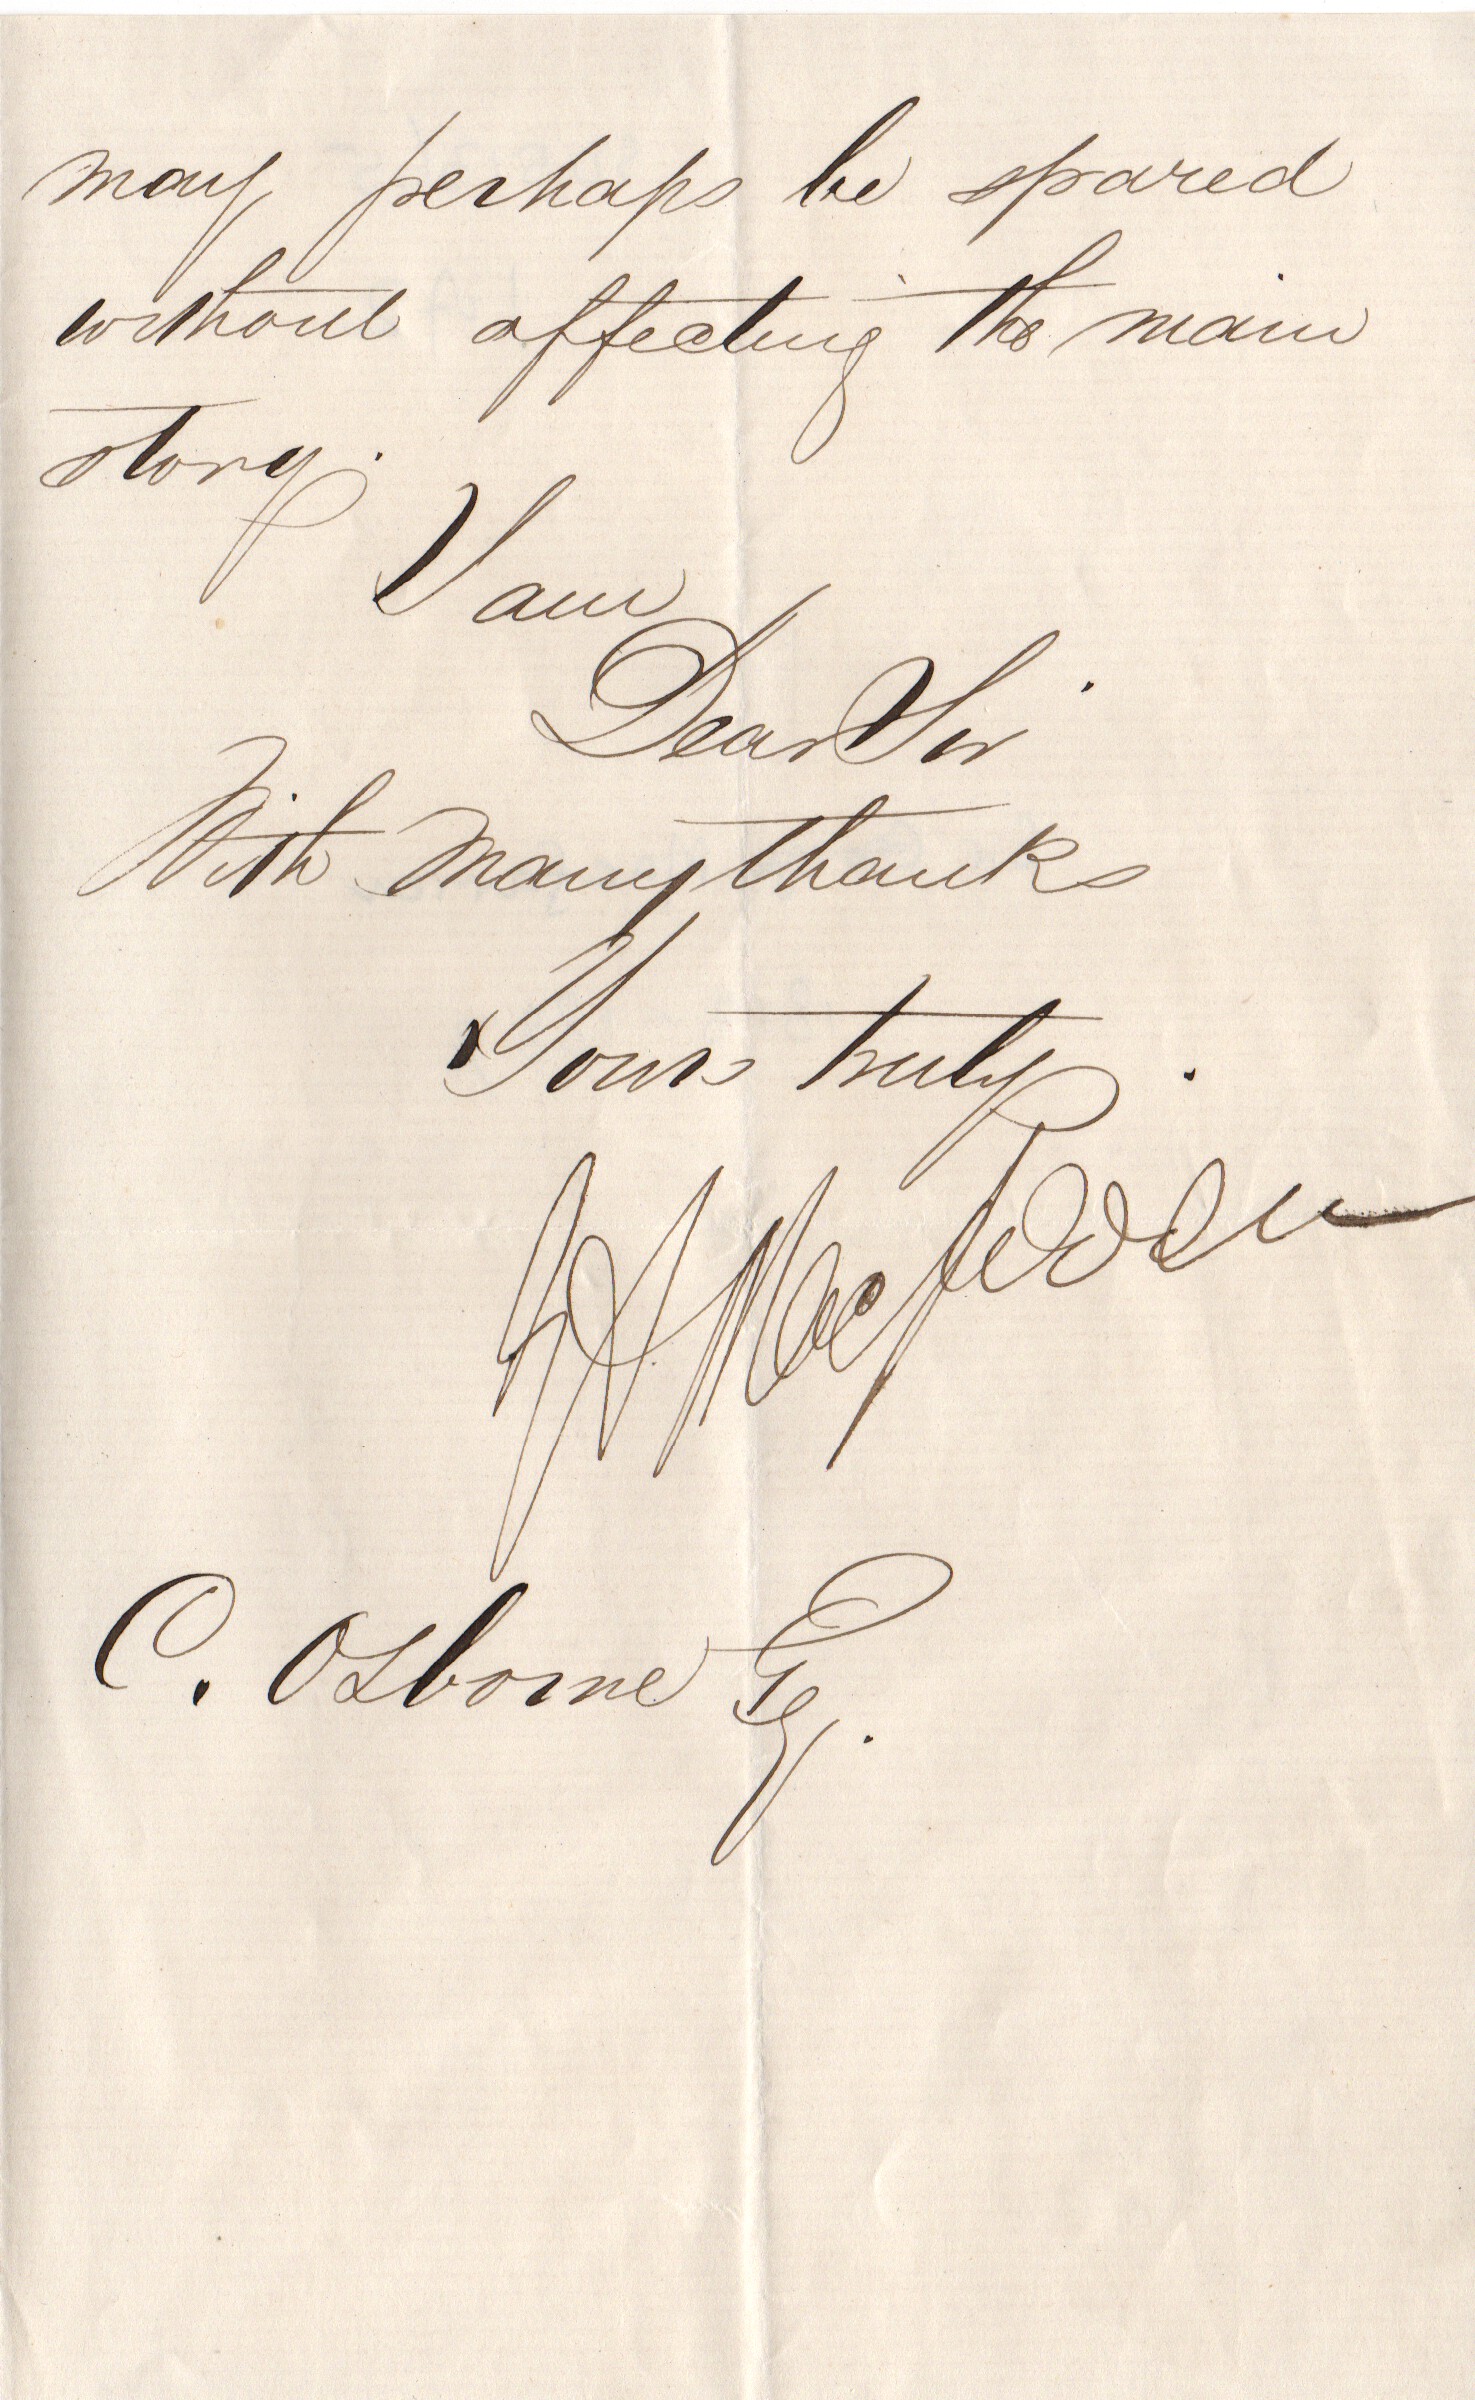 may perhaps be spared
without affecting the main
story.
I am
Dear Sir
With many thanks
Yours truly.
C. Osborne Esq.